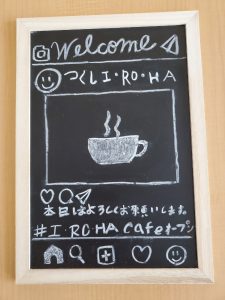 Welcome
つくしI・RO・HA
本日はよろしくお願いします。
#I・RO・HA Cafeオープン